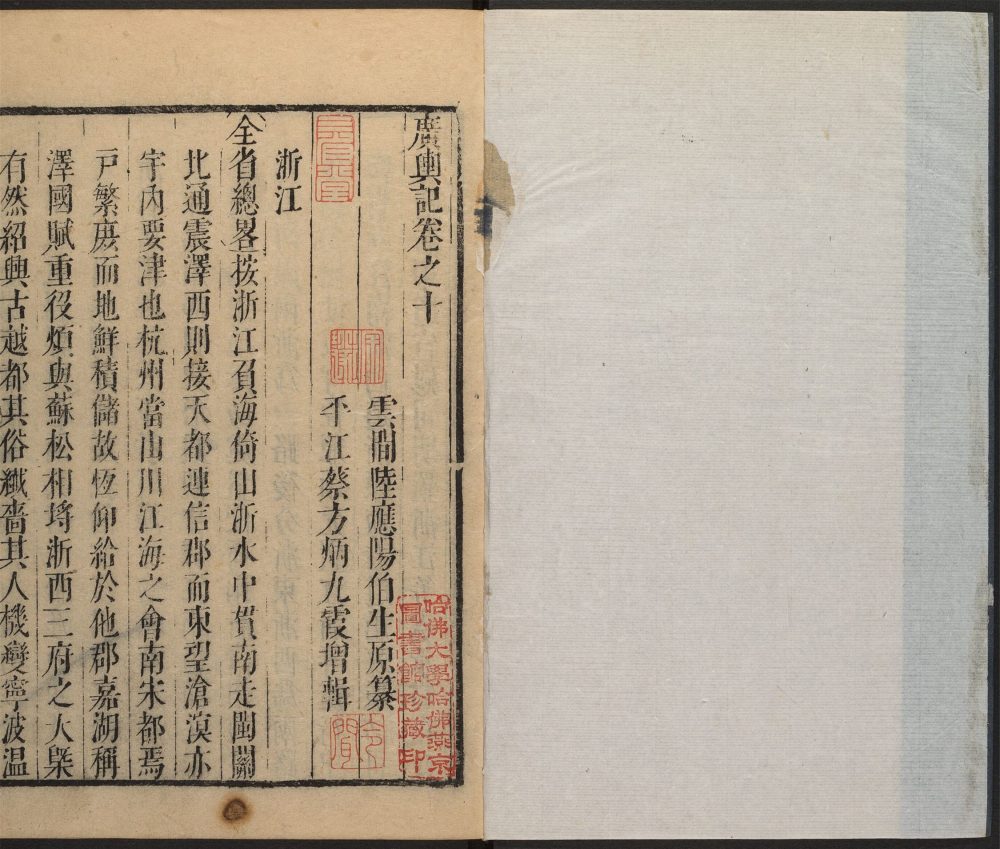 廣輿記卷之十
雲間陸應陽伯生原纂
平江蔡方炳九霞增輯
浙江
全省總畧按浙江負海倚山浙水中貫南走閩關
北通震澤西則接天都連信郡而東望滄溟亦
宇內要津也杭州當山川江海之會南宋都焉
戸繁庶而地鮮積儲故恆仰給於他郡嘉湖稱
澤國賦重役煩與蘇松相埓浙西三府之大槩
有然紹興古越都其俗纖嗇其人機變寧波温
哈佛大學哈佛燕京
圖書館珍藏印